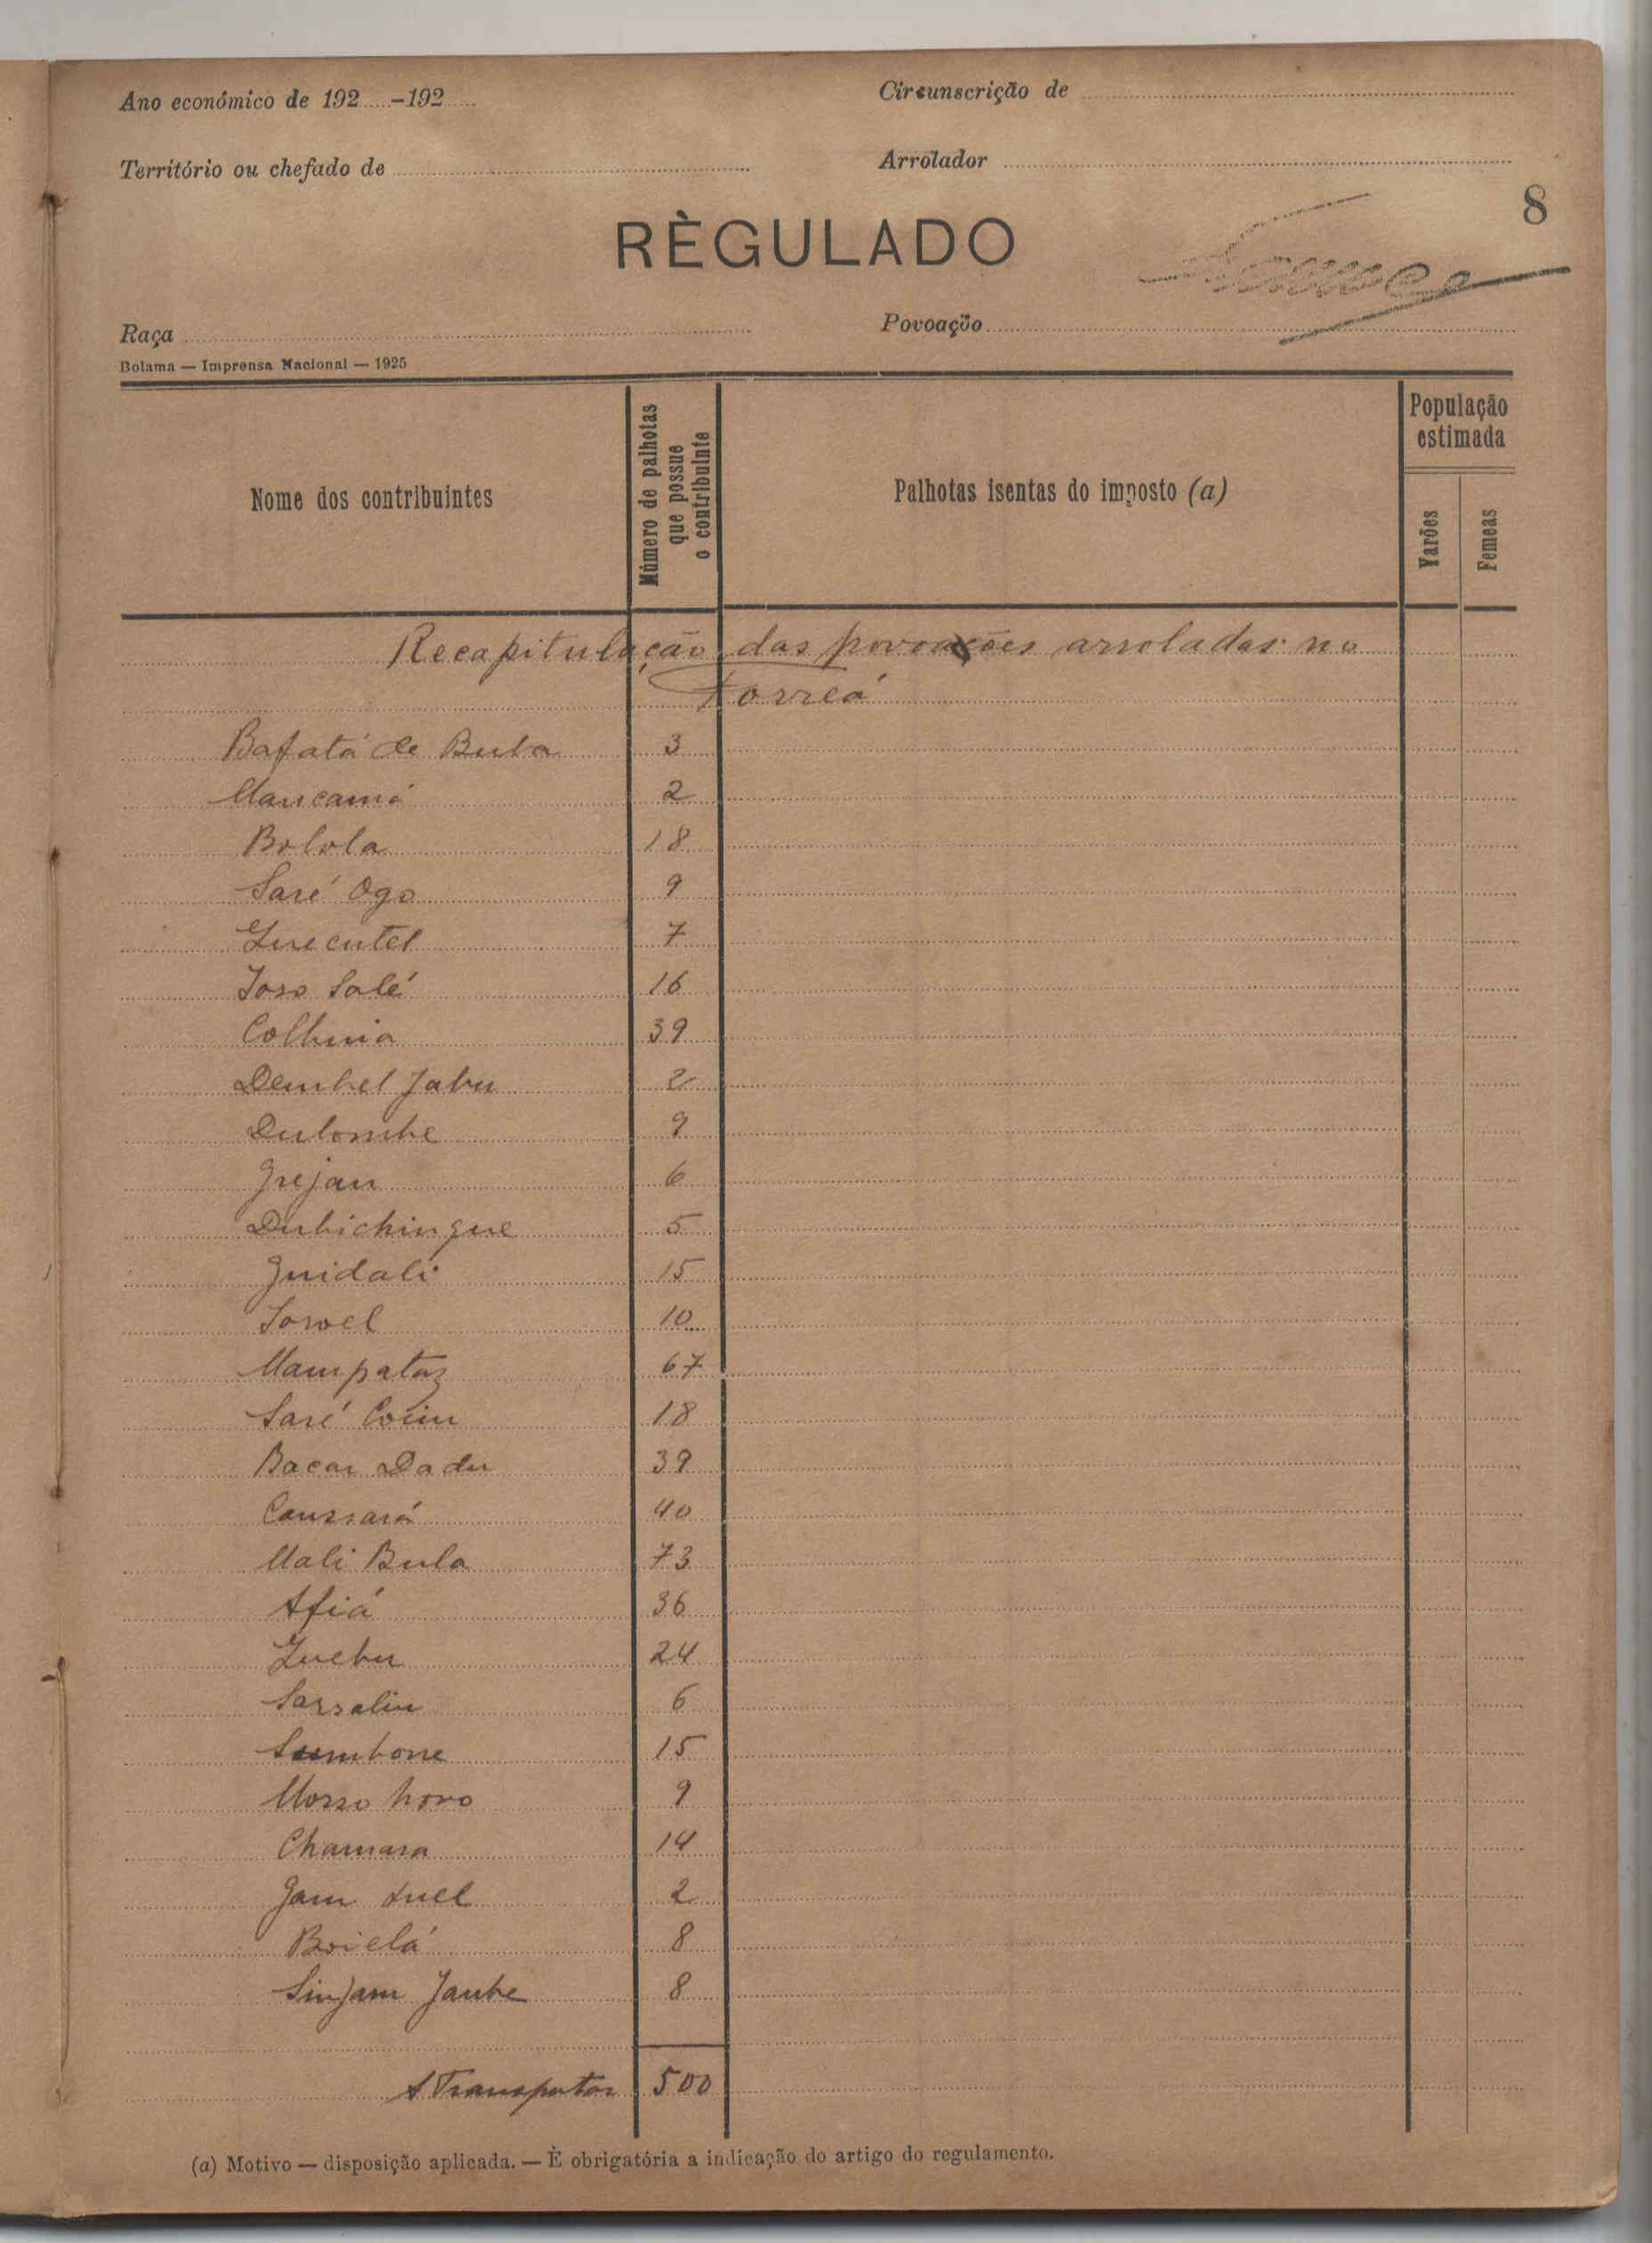 Ano económico de 192.....-192.....
Circunscrição de
Território ou chefado de
Arrolador
8
RÈGULADO
Raça
Povoação
Bolama — Imprensa Nacional — 1925
Nome dos contribuintes
Número de palhotas que possue o contribuinte
Palhotas isentas do imposto (a)
População estimada
Varões
Femeas
Recapitulação das povoações arroladas no
Forreá
Bafatá de Buba 3
Mancamá 2
Bolola 18
Saré Ogo 9
7
Joso Salé 16
Colhuia 39
Dembel Jabu 2
Dulombe 9
Grejan 6
Dubichingue 5
Guidali 15
10
Mampataz 67
Saré Coiin 18
Bacar Dadu 39
Caussará 40
Mali Bula 73
Afiá 36
24
6
15
9
Chamara 14
2
Boielá 8
Sinjam Jaube 8
A Transportar 500
(a) Motivo — disposição aplicada. — È obrigatória a indicação do artigo do regulamento.